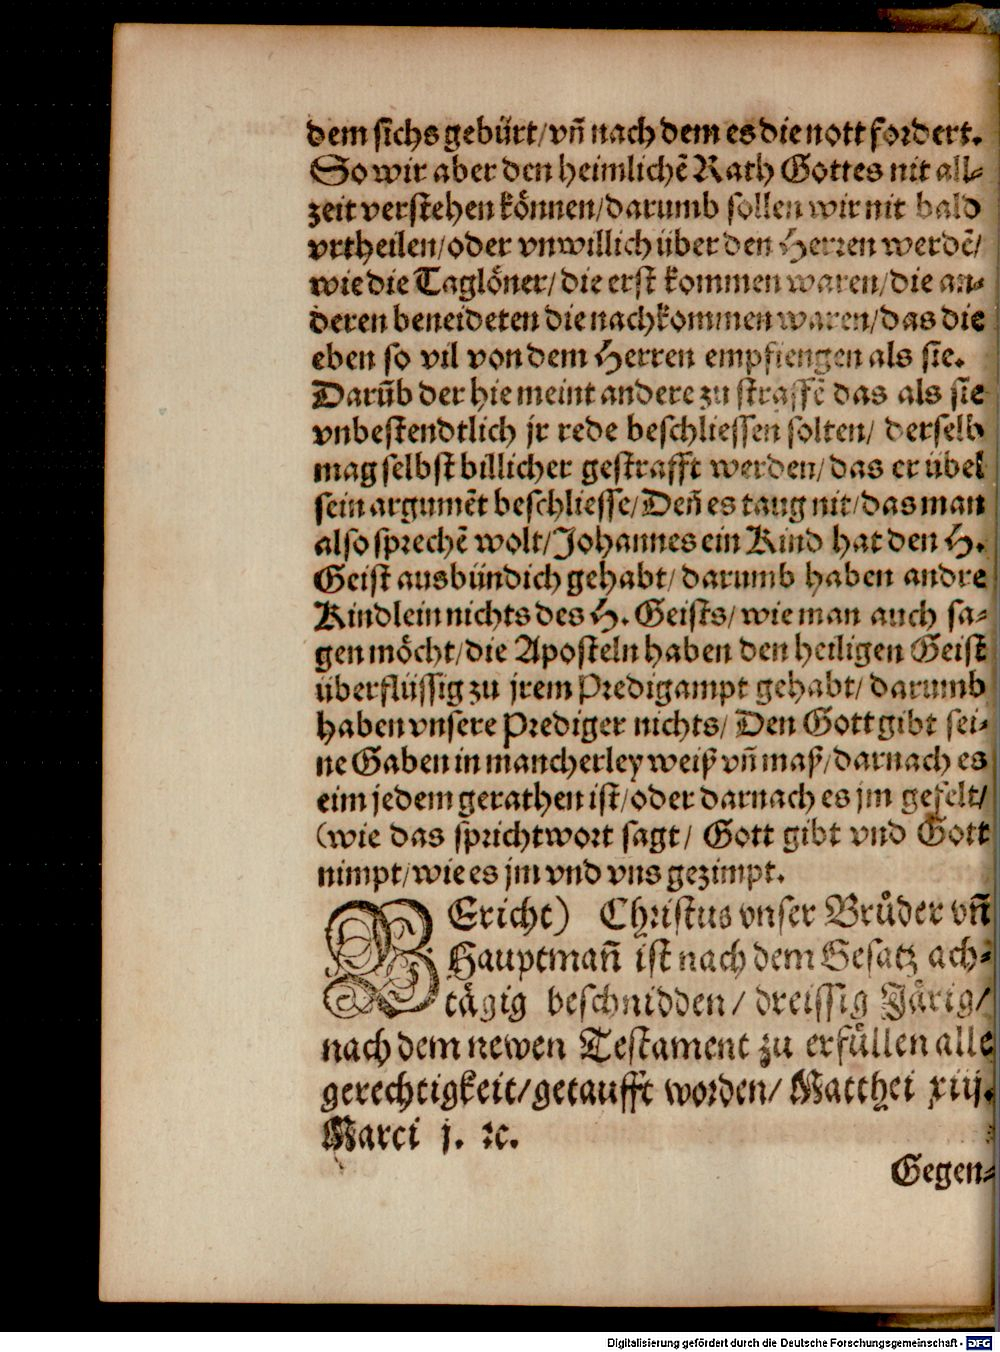 dem sichs gebürt/vñ nach dem es die nott fordert.
So wir aber den heimlichẽ Rath Gottes nit all-
zeit verstehen können/darumb sollen wir nit bald
vrtheilen/oder vnwillich über den Herren werdẽ/
wie die Taglöner/die erst kommen waren/die an-
deren beneideten die nachkommen waren/das die
eben so vil von dem Herren empfiengen als sie.
Darũb der hie meint andere zu straffẽ das als sie
vnbestendtlich jr rede beschliessen solten/ derselb
mag selbst billicher gestrafft werden/das er übel
sein argumẽt beschliesse/Deñ es taug nit/das man
also sprechẽ wolt/Johannes ein Kind hat den H.
Geist ausbündich gehabt/ darumb haben andre
Kindlein nichts des H. Geists/wie man auch sa-
gen möcht/die Aposteln haben den heiligen Geist
überflüssig zu jrem Predigampt gehabt/ darumb
haben vnsere Prediger nichts/ Den Gott gibt sei-
ne Gaben in mancherley weiß vñ maß/darnach es
eim jedem gerathen ist/oder darnach es jm gefelt/
(wie das sprichtwort sagt/ Gott gibt vnd Gott
nimpt/wie es jm vnd vns gezimpt.
BEricht) Christus vnser Brůder vñ
Hauptmañ ist nach dem Gesatz ach-
tägig beschnidden/ dreissig Järig/
nach dem newen Testament zu erfüllen alle
gerechtigkeit/getaufft worden/ Matthei xiij.
Marci j. ꝛc.
Gegen-
Digitalisierung gefördert durch die Deutsche Forschungsgemeinschaft - DFG